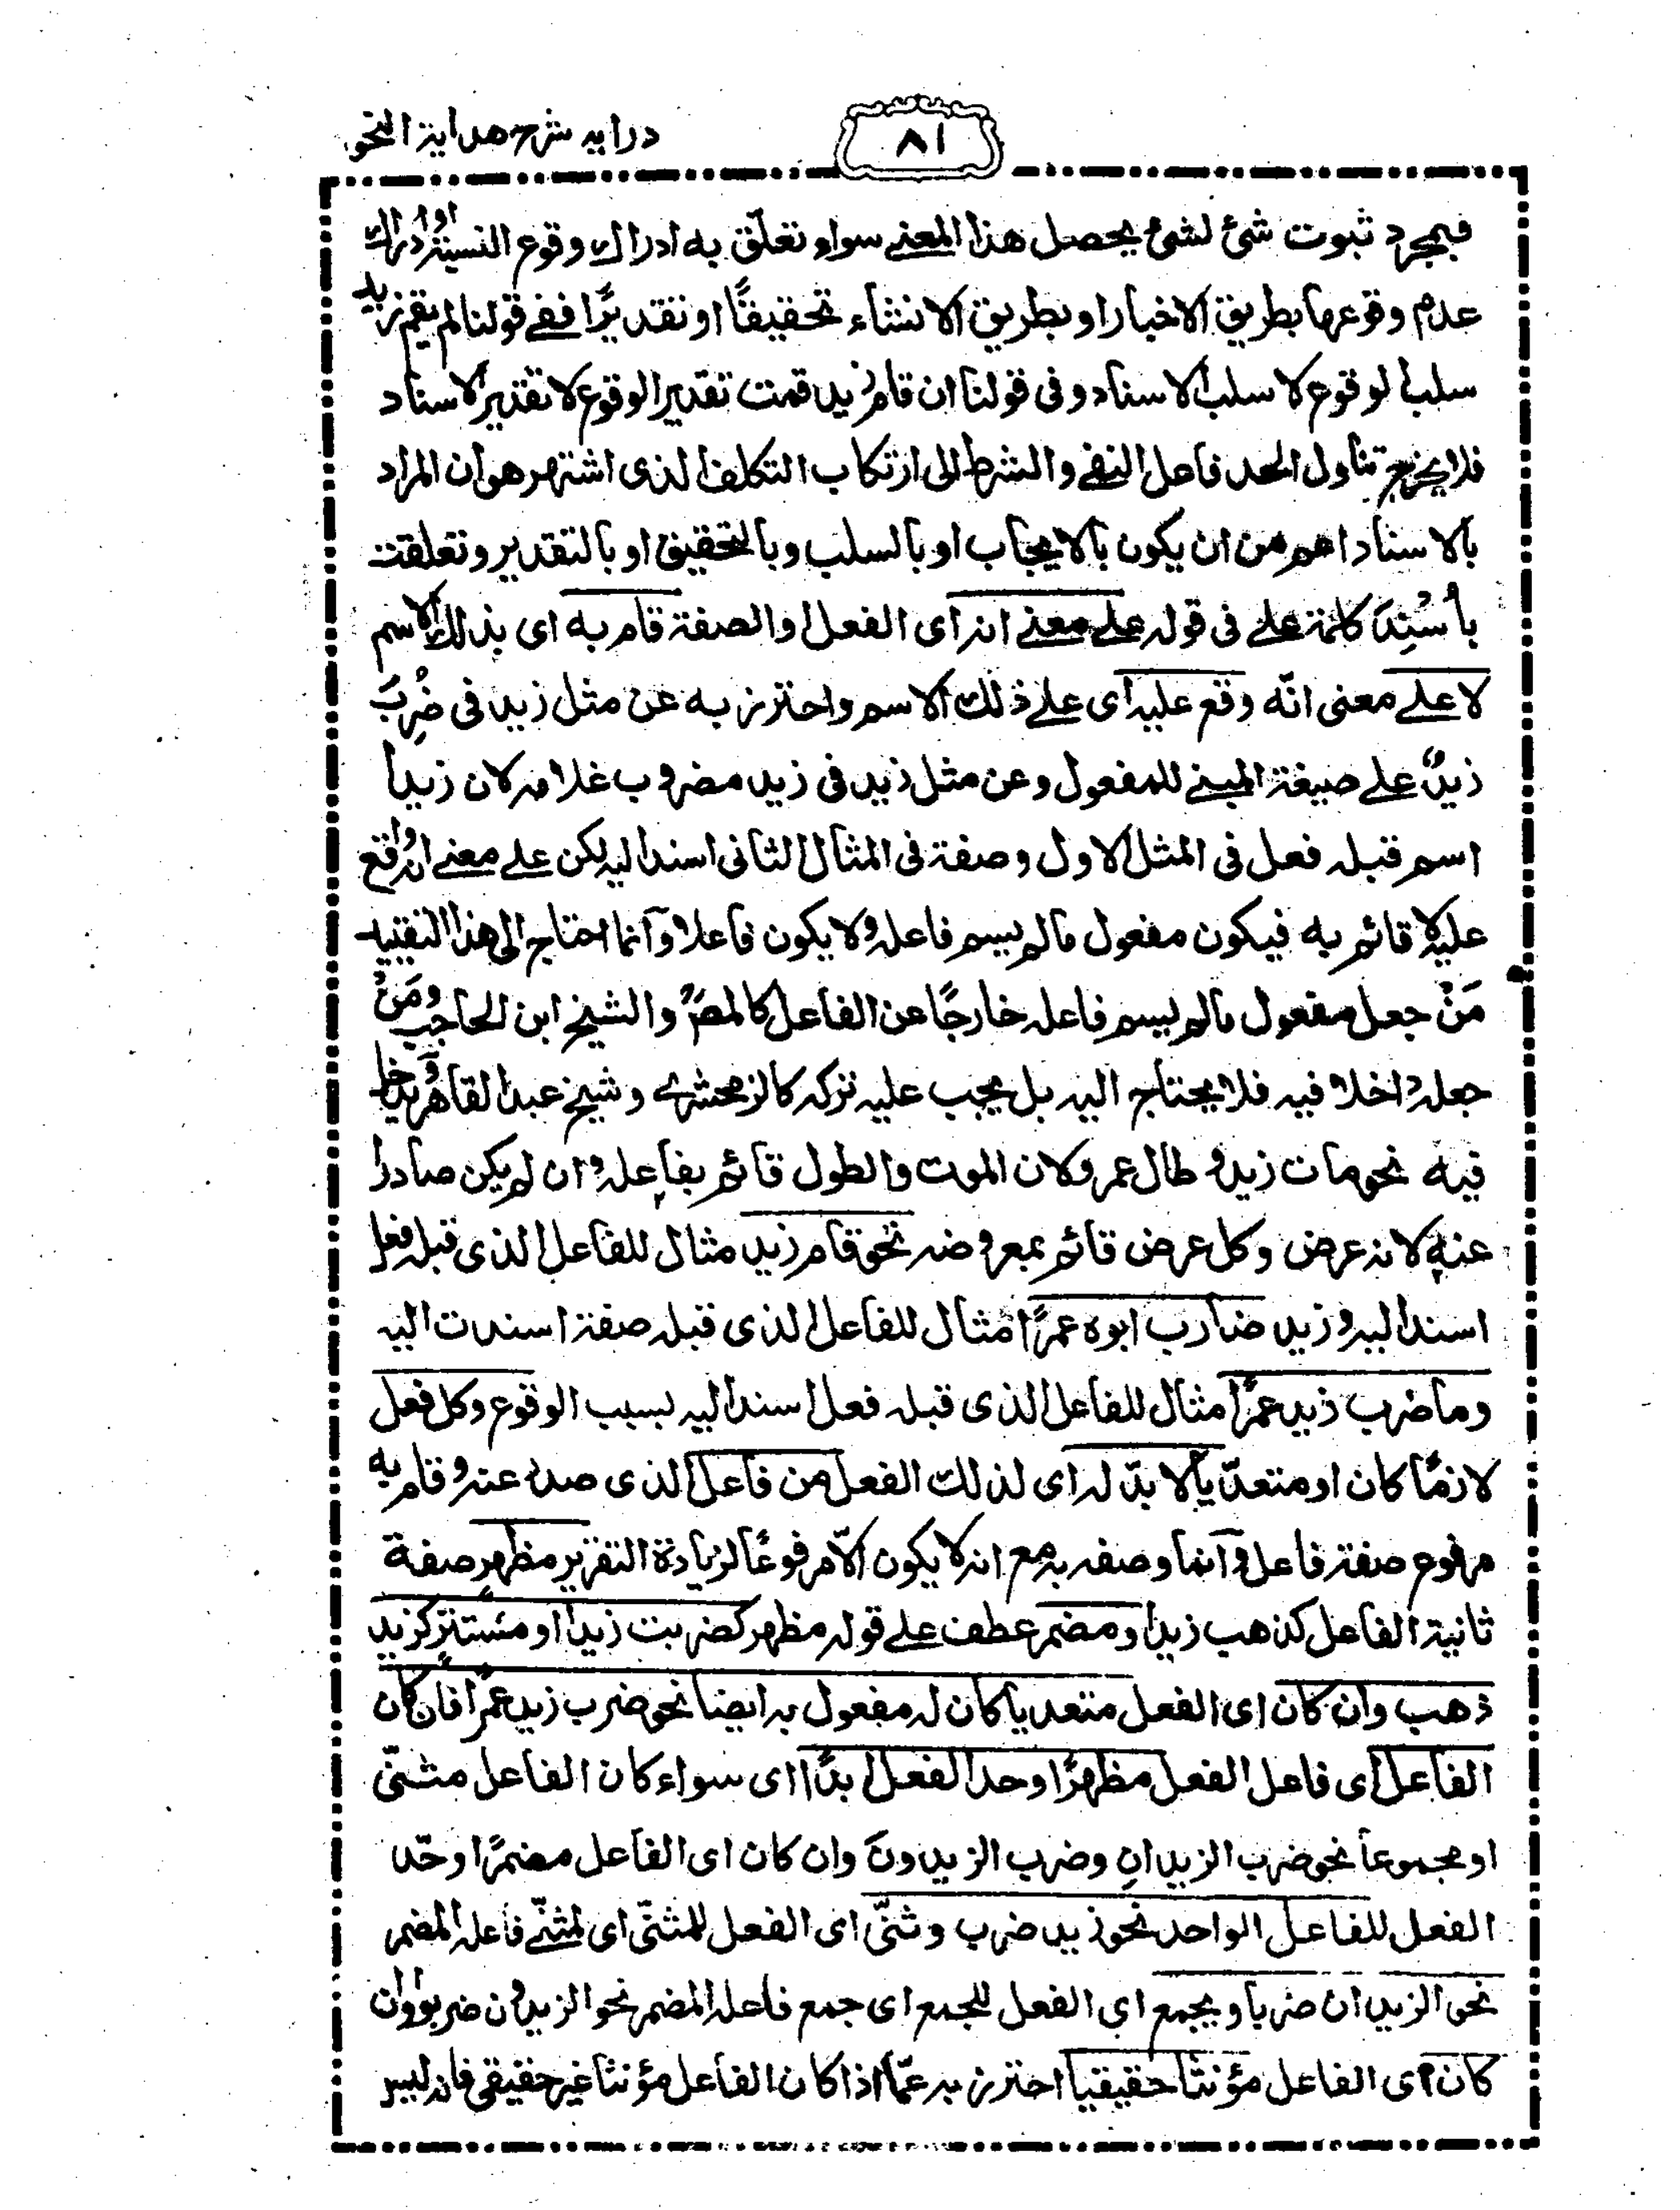 درايه شرح هداية النحو
٨١
فبمجرد ثبوت شئ لشئ يحصل هذا المعنے سواء تعلّق به ادراك وقوع النسبة او ادراك
عدم وقوعها بطريق الاخبار او بطريق الانشاء تحقيقًا او تقديرًا ففے قولنا لم يقم زيد
سلب الوقوع لا سلب الاسناد و فى قولنا ان قام زيد قمت تقدير الوقوع لا تقدير الاسناد
فلا يخرج تناول الحد فاعل النفے والشرط الى ارتكاب التكلف الذى اشتهر هو ان المراد
بالاسناد اعم من ان يكون بالايجاب او بالسلب و بالتحقيق او بالتقدير و تعلقت
بأُسْنِدَ كلمة علے فى قوله علے معنے انه اى الفعل والصفة قام به اى بذلك الاسم
لا علے معنى انّه وقع عليه اى علے ذلك الاسم واحترز به عن مثل زيد فى ضُرِبَ
زيدٌ علے صيغة المبنے للمفعول و عن مثل زيد فى زيد مضروب غلامه لان زيدا
اسم قبله فعل فى المثل الاول و صفة فى المثال الثانى اسند اليه لكن علے معنے انه واقع
عليه لا قائم به فيكون مفعول مالم يسم فاعله ولا يكون فاعلا و آنما احتاج الى هذا التقييد
مَنْ جعل مفعول مالم يسم فاعله خارجًا عن الفاعل كالمصؒ والشيخ ابن الحاجب ومَنْ
جعله داخلا فيه فلا يحتاج اليه بل يجب عليه تركه كالزمحشرے و شيخ عبد القاهر و يدخل
فيه نحو مات زيد و طال عمرو لان الموت والطول قائم بفاعله و ان لم يكن صادرا
عنه لانه عرض و كل عرض قائم بمعروضه نحو قام زيد مثال للفاعل الذى قبله فعل
اسند اليه و زيد ضارب ابوه عمرًا مثال للفاعل الذى قبله صفة اسندت اليه
وما ضرب زيد عمرًا مثال للفاعل الذى قبله فعل اسند اليه بسبب الوقوع وكل فعل
لازمًا كان او متعدّيا لا بدّ له اى لذلك الفعل من فاعل الذى صدر عنه و قام به
مرفوع صفة فاعل و آنما وصفه به مع انه لا يكون الّا مرفوعًا لزيادة التقرير مظهر صفة
ثانية الفاعل كذهب زيد او مضمر عطف علے قوله مظهر كضربت زيدا او مستتر كزيد
ذهب وان كان اى الفعل متعديا كان له مفعول به ايضا نحو ضرب زيد عمرًا فان كان
الفاعل اى فاعل الفعل مظهرًا وحد الفعل ابدًا اى سواء كان الفاعل مثنّى
او مجموعا نحو ضرب الزيدانِ وضرب الزيدونَ وان كان اى الفاعل مضمرًا وحّد
الفعل للفاعل الواحد نحو زيد ضرب و ثنّى اى الفعل للمثنّى اى لمثنّے فاعله المضمر
نحو الزيدان ضربا و يجمع اى الفعل للجمع اى جمع فاعله المضمر نحو الزيدون ضربوا وان
كان اى الفاعل مؤنثا حقيقيا احترز به عمّا اذا كان الفاعل مؤنثا غير حقيقى فانه ليس